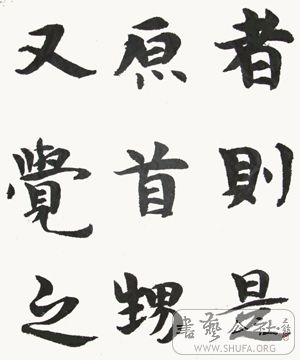 者則是
原首甥
又覺之
書藝公社
WWW.SHUFA.ORG